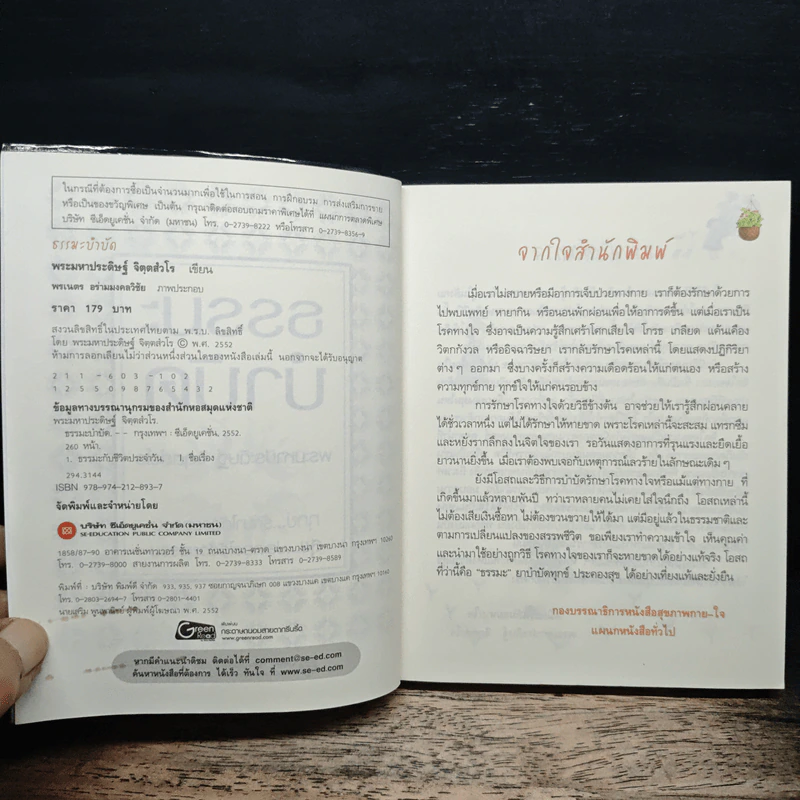 ในกรณีที่ต้องการซื้อเป็นจำนวนมากเพื่อใช้ในการสอน การฝึกอบรม การส่งเสริมการขาย
หรือเป็นของขวัญพิเศษ เป็นต้น กรุณาติดต่อสอบถามราคาพิเศษได้ที่ แผนกการตลาดพิเศษ
บริษัท ซีเอ็ดยูเคชั่น จำกัด (มหาชน) โทร. 0-2739-8222 หรือโทรสาร 0-2739-8356-9
ธรรมะบำบัด
พระมหาประดิษฐ์ จิตฺตสํวโร เขียน
พรเนตร อร่ามมงคลวิชัย ภาพประกอบ
ราคา 179 บาท
สงวนลิขสิทธิ์ในประเทศไทยตาม พ.ร.บ. ลิขสิทธิ์
โดย พระมหาประดิษฐ์ จิตฺตสํวโร © พ.ศ. 2552
ห้ามการลอกเลียนไม่ว่าส่วนหนึ่งส่วนใดของหนังสือเล่มนี้ นอกจากจะได้รับอนุญาต
2 1 1 -603 -102
1 2 5 5 0 9 8 7 6 5 4 3 2
ข้อมูลทางบรรณานุกรมของสำนักหอสมุดแห่งชาติ
พระมหาประดิษฐ์ จิตฺตสํวโร.
ธรรมะบำบัด. -- กรุงเทพฯ : ซีเอ็ดยูเคชั่น, 2552.
260 หน้า.
1. ธรรมะกับชีวิตประจำวัน. I. ชื่อเรื่อง
294.3144
ISBN 978-974-212-893-7
จัดพิมพ์และจำหน่ายโดย
บริษัท ซีเอ็ดยูเคชั่น จำกัด (มหาชน)
SE-EDUCATION PUBLIC COMPANY LIMITED
1858/87-90 อาคารเนชั่นทาวเวอร์ ชั้น 19 ถนนบางนา-ตราด แขวงบางนา เขตบางนา กรุงเทพฯ 10260
โทร. 0-2739-8000 สายงานการผลิต โทร. 0-2739-8333 โทรสาร 0-2739-8589
พิมพ์ที่ : บริษัท พิมพ์ดี จำกัด 933, 935, 937 ซอยกาญจนาภิเษก 008 แขวงบางแค เขตบางแค กรุงเทพฯ 10160
โทร. 0-2803-2694-7 โทรสาร 0-2801-4401
ผู้พิมพ์ผู้โฆษณา พ.ศ. 2552
Green Read
พิมพ์บน
กระดาษถนอมสายตากรีนรี้ด
www.greenread.com
หากมีคำแนะนำติชม ติดต่อได้ที่ comment@se-ed.com
ค้นหาหนังสือที่ต้องการ ได้เร็ว ทันใจ ที่ www.se-ed.com
จากใจสำนักพิมพ์
เมื่อเราไม่สบายหรือมีอาการเจ็บป่วยทางกาย เราก็ต้องรักษาด้วยการ
ไปพบแพทย์ หายากิน หรือนอนพักผ่อนเพื่อให้อาการดีขึ้น แต่เมื่อเราเป็น
โรคทางใจ ซึ่งอาจเป็นความรู้สึกเศร้าโศกเสียใจ โกรธ เกลียด แค้นเคือง
วิตกกังวล หรืออิจฉาริษยา เรากลับรักษาโรคเหล่านี้ โดยแสดงปฏิกิริยา
ต่าง ๆ ออกมา ซึ่งบางครั้งก็สร้างความเดือดร้อนให้แก่ตนเอง หรือสร้าง
ความทุกข์กาย ทุกข์ใจให้แก่คนรอบข้าง
การรักษาโรคทางใจด้วยวิธีข้างต้น อาจช่วยให้เรารู้สึกผ่อนคลาย
ได้ชั่วเวลาหนึ่ง แต่ไม่ได้รักษาให้หายขาด เพราะโรคเหล่านี้จะสะสม แทรกซึม
และหยั่งรากลึกลงในจิตใจของเรา รอวันแสดงอาการที่รุนแรงและยืดเยื้อ
ยาวนานยิ่งขึ้น เมื่อเราต้องพบเจอกับเหตุการณ์เลวร้ายในลักษณะเดิม ๆ
ยังมีโอสถและวิธีการบำบัดรักษาโรคทางใจหรือแม้แต่ทางกาย ที่
เกิดขึ้นมาแล้วหลายพันปี ทว่าเราหลายคนไม่เคยใส่ใจนึกถึง โอสถเหล่านี้
ไม่ต้องเสียเงินซื้อหา ไม่ต้องขวนขวายให้ได้มา แต่มีอยู่แล้วในธรรมชาติและ
ตามการเปลี่ยนแปลงของสรรพชีวิต ขอเพียงเราทำความเข้าใจ เห็นคุณค่า
และนำมาใช้อย่างถูกวิธี โรคทางใจของเราก็จะหายขาดได้อย่างแท้จริง โอสถ
ที่ว่านี้คือ "ธรรมะ" ยาบำบัดทุกข์ ประคองสุข ได้อย่างเที่ยงแท้และยั่งยืน
กองบรรณาธิการหนังสือสุขภาพกาย-ใจ
แผนกหนังสือทั่วไป